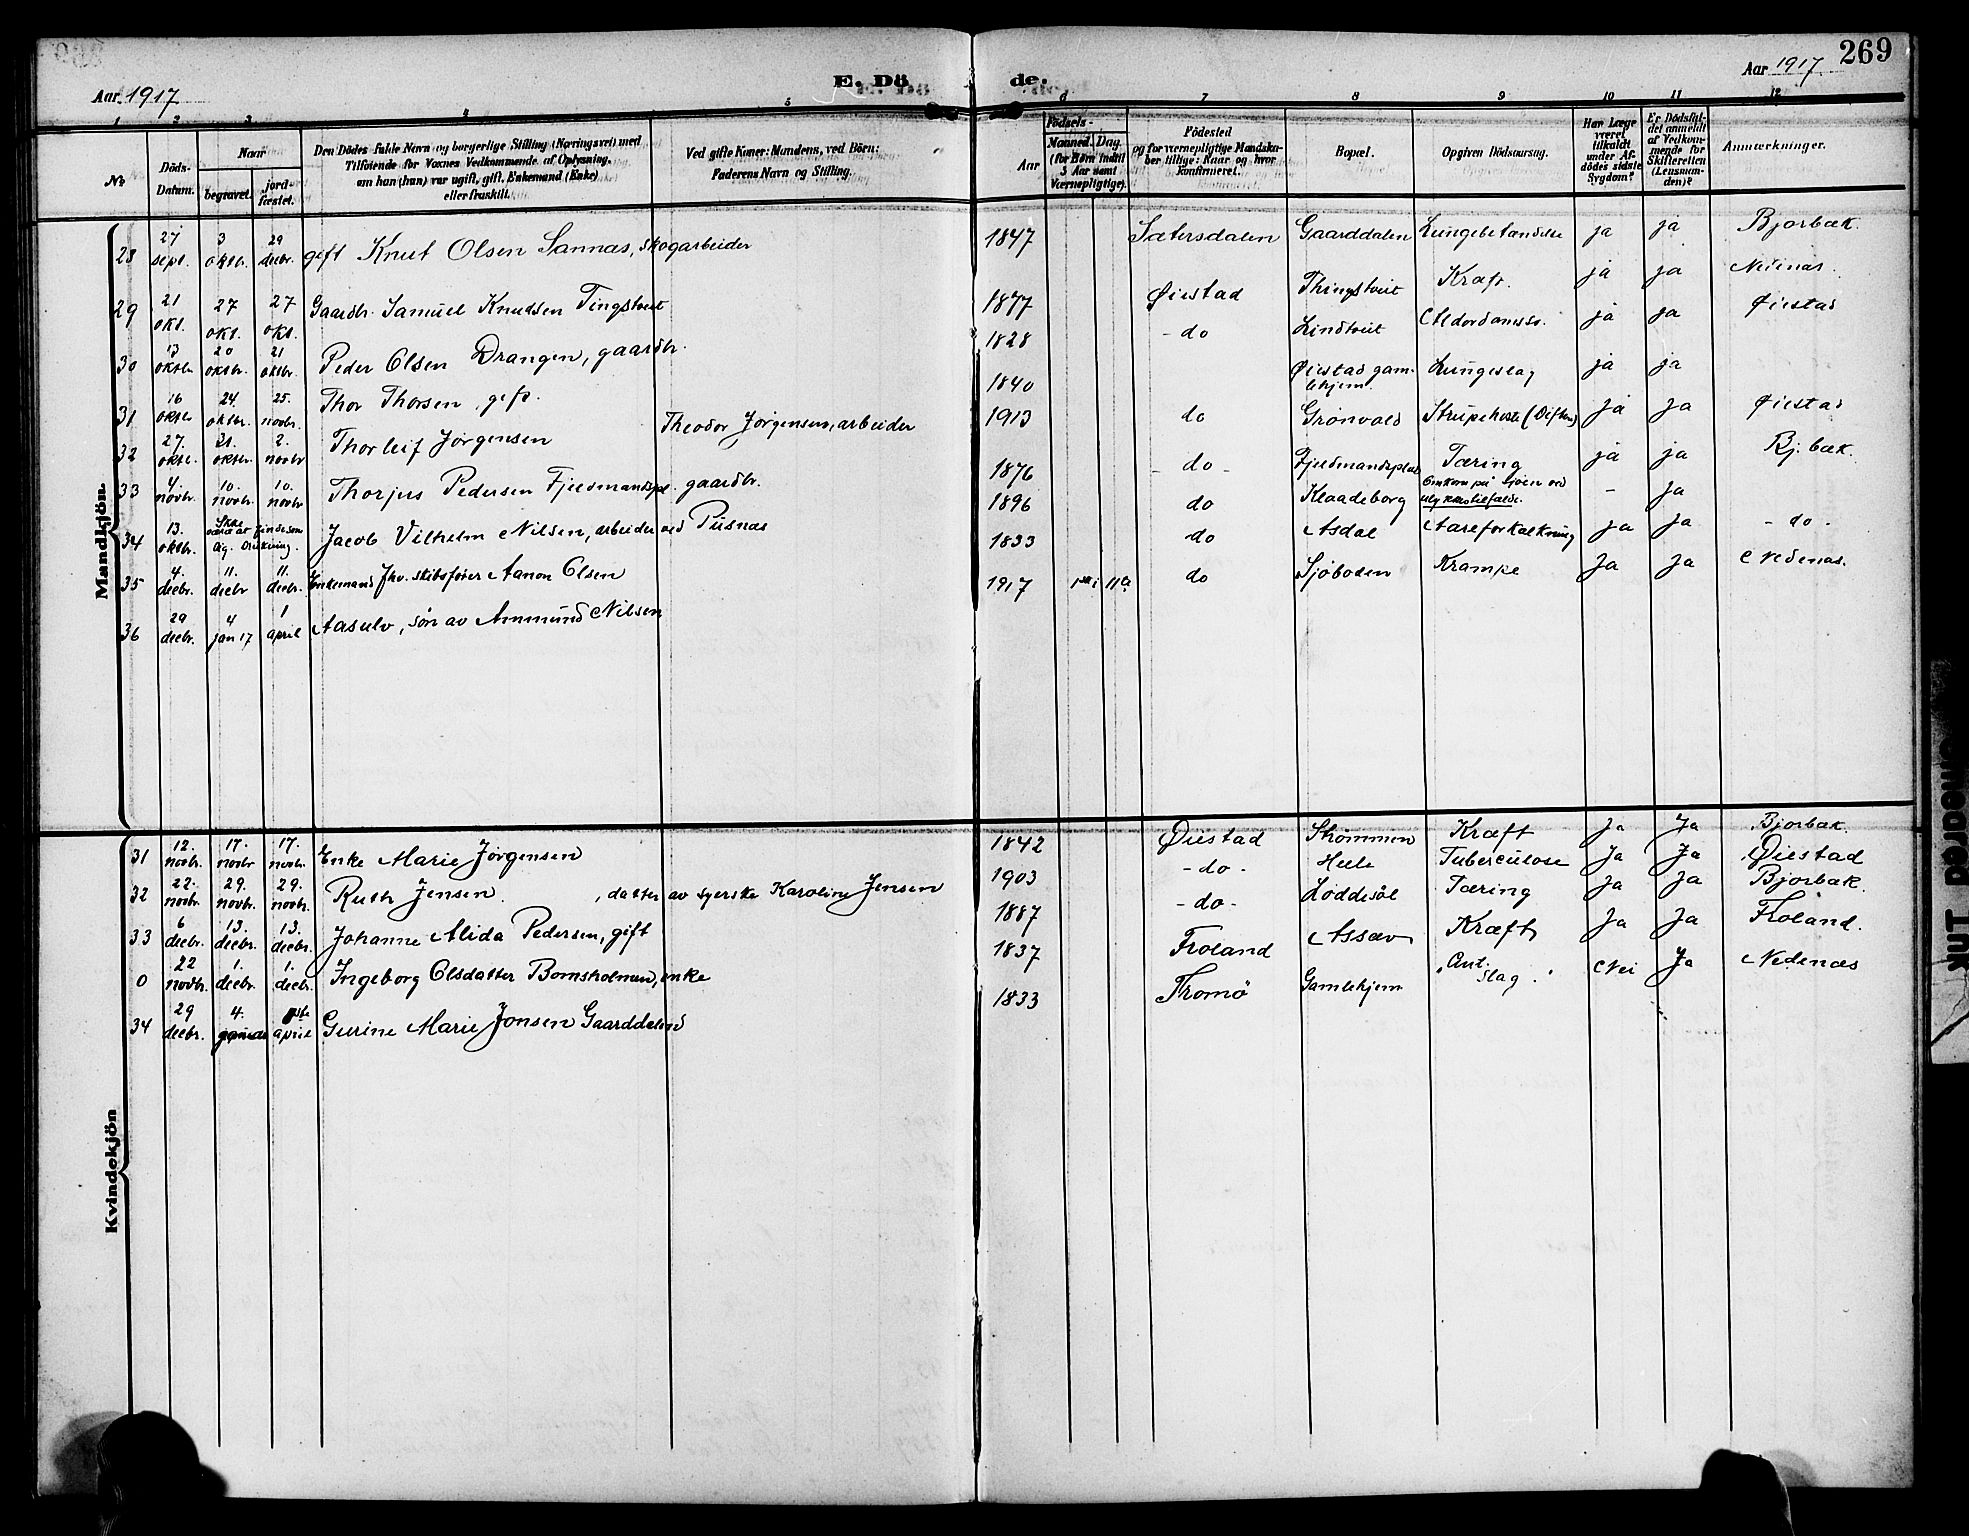 269
Aar 1917
E. Döde.
Aar 1917
1 2 3 4 5 6 7 8 9 10 11 12
No
Döds-Datum.
Naar
begravet.
jord-fæstet.
Den Dödes fulde Navn og borgerlige Stilling (Næringsvei) med
Tilföiende for Voxnes Vedkommende af Oplysning,
om han (hun) var ugift, gift, Enkemand (Enke)
eller fraskilt.
Ved gifte Koner: Mandens, ved Börn:
Faderens Navn og Stilling.
Födsels-
Aar
Maaned. Dag.
(for Börn indtil
5 Aar samt
Værnepligtige).
Födested
og for værnepligtige Mandska-
ber tillige: Naar og hvor
konfirmeret.
Bopæl.
Opgiven Dödsaarsag.
Har Læge
været
tilkaldt
under Af-
dödes sidste
Sygdom?
Er Dödsfal-
det anmeldt
af Vedkom-
mende for
Skifteretten
(Lensman-
den)?
Anmærkninger.
Mandkjön.
28 27 sept. 3 oktbr. 29 decbr. gift Knut Olsen Sannæs, skogarbeider 1847 Sætersdalen Gaarddalen Lungebetændelse ja ja Bjorbæk.
29 21 okt. 27 okt. 27 okt. Gaardbr. Samuel Knudsen Tingstveit 1877 Øiestad Thingstveit Kræft. ja ja Nedenæs.
30 13 oktbr. 20 oktbr. 21 oktbr. Peder Olsen Drangen, gaardbr. 1828 - do Lindtveit Alderdomssv. ja ja Øiestad
31 16 oktbr. 24. oktbr. 25. novbr. Thor Thorsen, gift. 1840 Øiestad gamlehjem Lungeslag ja ja
32 27. oktbr. 31. oktbr. 2. novbr Thorleif Jørgensen Theodor Jørgensen, arbeider 1913 do Grønvold Strupehoste (Difteri) ja ja Øiestad
33 4. novbr. 10. novbr. 10. novbr Thorjus Pedersen Fjeldmandspl. gaardbr. 1876 - do - Fjeldmandsplads Tæring ja ja Bj.bæk.
34 13. oktbr. Ikke Drukning. Jacob Vilhelm Nilsen, arbeider ved Pusnæs 1896 do Klaadeborg Omkom på Sjøen ved ulykkestilfælde. - ja
35 4. decbr. 11. decbr 11. decbr. Enkemand fhv. skibsfører Aanon Olsen 1833 do Asdal Aareforkalkning ja ja - do -
36 29 decbr. 4 jan 17 1 april Aasulv, søn av Ammund Nilsen 1917 do Sjøboden Krampe Ja Ja Nedenæs.
Kvindekjön
31 12. novbr. 17. novbr 17. novbr. Enke Marie Jørgensen 1842 Øiestad Strømmen Kræft Ja Ja Bjorbæk.
32 22. novbr. 29. novbr. 29. novbr. Ruth Jensen, datter av syerske Karoline Jensen 1903 - do - Hele Tuberculose Ja Ja Øiestad
33 6 decbr. 13. decbr. 13. decbr. Johanne Alida Pedersen, gift 1887 - do - Løddesøl Tæring Ja Ja Bjorbæk.
0 22 novbr. 1. decbr. 1. decbr. Ingeborg Olsdatter Bomsholmen, enke 1837 Froland Assæv Kræft Ja Ja Froland.
34 29 decbr. 4. januar 1ste april Gurine Marie Jonsen Gaarddalend 1833 Tromø Gamlehjem Slag. Nei Ja Nedenæs